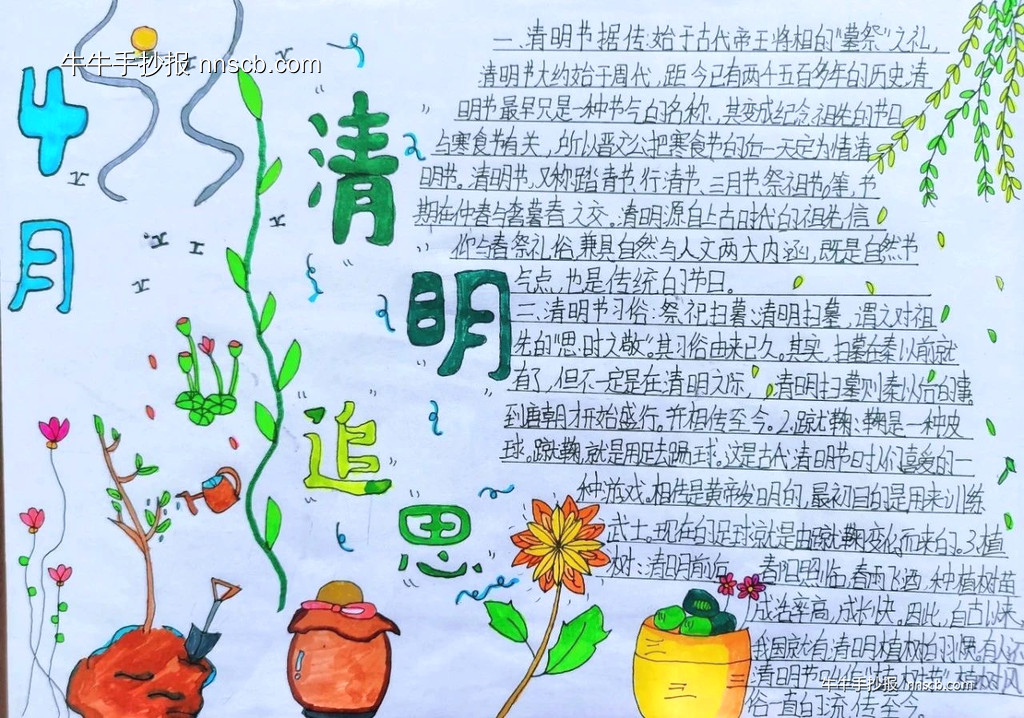 牛牛手抄报 nnscb.com
4月
清明
追思
一、清明节据传始于古代帝王将相的“墓祭”之礼，
清明节大约始于周代，距今已有两千五百多年的历史，清
明节最早只是一种节气的名称，其变成纪念祖先的节日
与寒食节有关，所以晋文公把寒食节的后一天定为清
明节。清明节，又称踏青节、行清节、三月节、祭祖节等，节
期在仲春与暮春之交。清明源自上古时代的祖先信
仰与春祭礼俗，兼具自然与人文两大内涵，既是自然节
气点，也是传统的节日。
二、清明节习俗：祭祀扫墓：清明扫墓，谓之对祖
先的“思时之敬”。其习俗由来已久。其实，扫墓在秦以前就
有了，但不一定是在清明之际，清明扫墓则秦以后的事
到唐朝才开始盛行。并相传至今。2.蹴鞠：鞠是一种皮
球。蹴鞠，就是用足去踢球。这是古代清明节时人们喜爱的一
种游戏。相传是黄帝发明的，最初目的是用来训练
武士。现在的足球就是由蹴鞠变化而来的。3.植
树：清明前后，春阳照临，春雨飞洒，种植树苗
成活率高，成长快。因此，自古以来，
我国就有清明植树的习惯。有人还
清明节叫作“植树节”植树风
俗一直流传至今。
牛牛手抄报 / nnscb.com